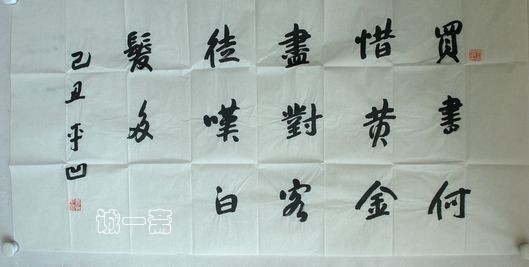 買書何
惜黄金
盡對客
徒嘆白
髮多
己丑平凹
诚一斋